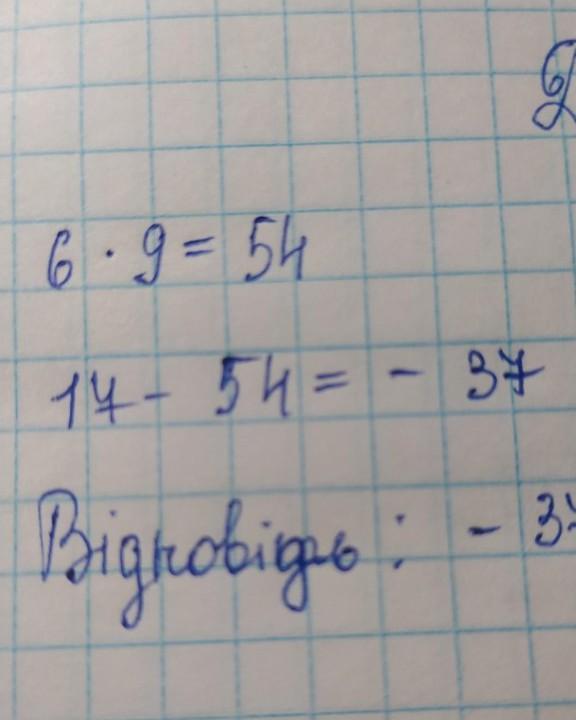 6 · 9 = 54
17 - 54 = - 37
Відповідь : - 37